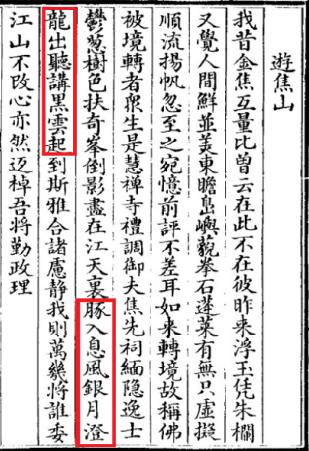 遊焦山
我昔金焦互量比曽云在此不在彼昨来浮玉凭朱欄
又覺人間鮮並美東瞻島嶼藐拳石蓬萊有無只虛擬
順流揚帆忽至之宛憶前評不差耳如来轉境故稱佛
被境轉者衆生是慧禪寺禮調御夫焦先祠緬隐逸士
鬱葱樹色扶奇峯倒影盡在江天裏豚入息風銀月澄
龍出聽講黒雲起到斯雅合諸慮静我則萬幾將誰委
江山不改心亦然迈棹吾將勤政理